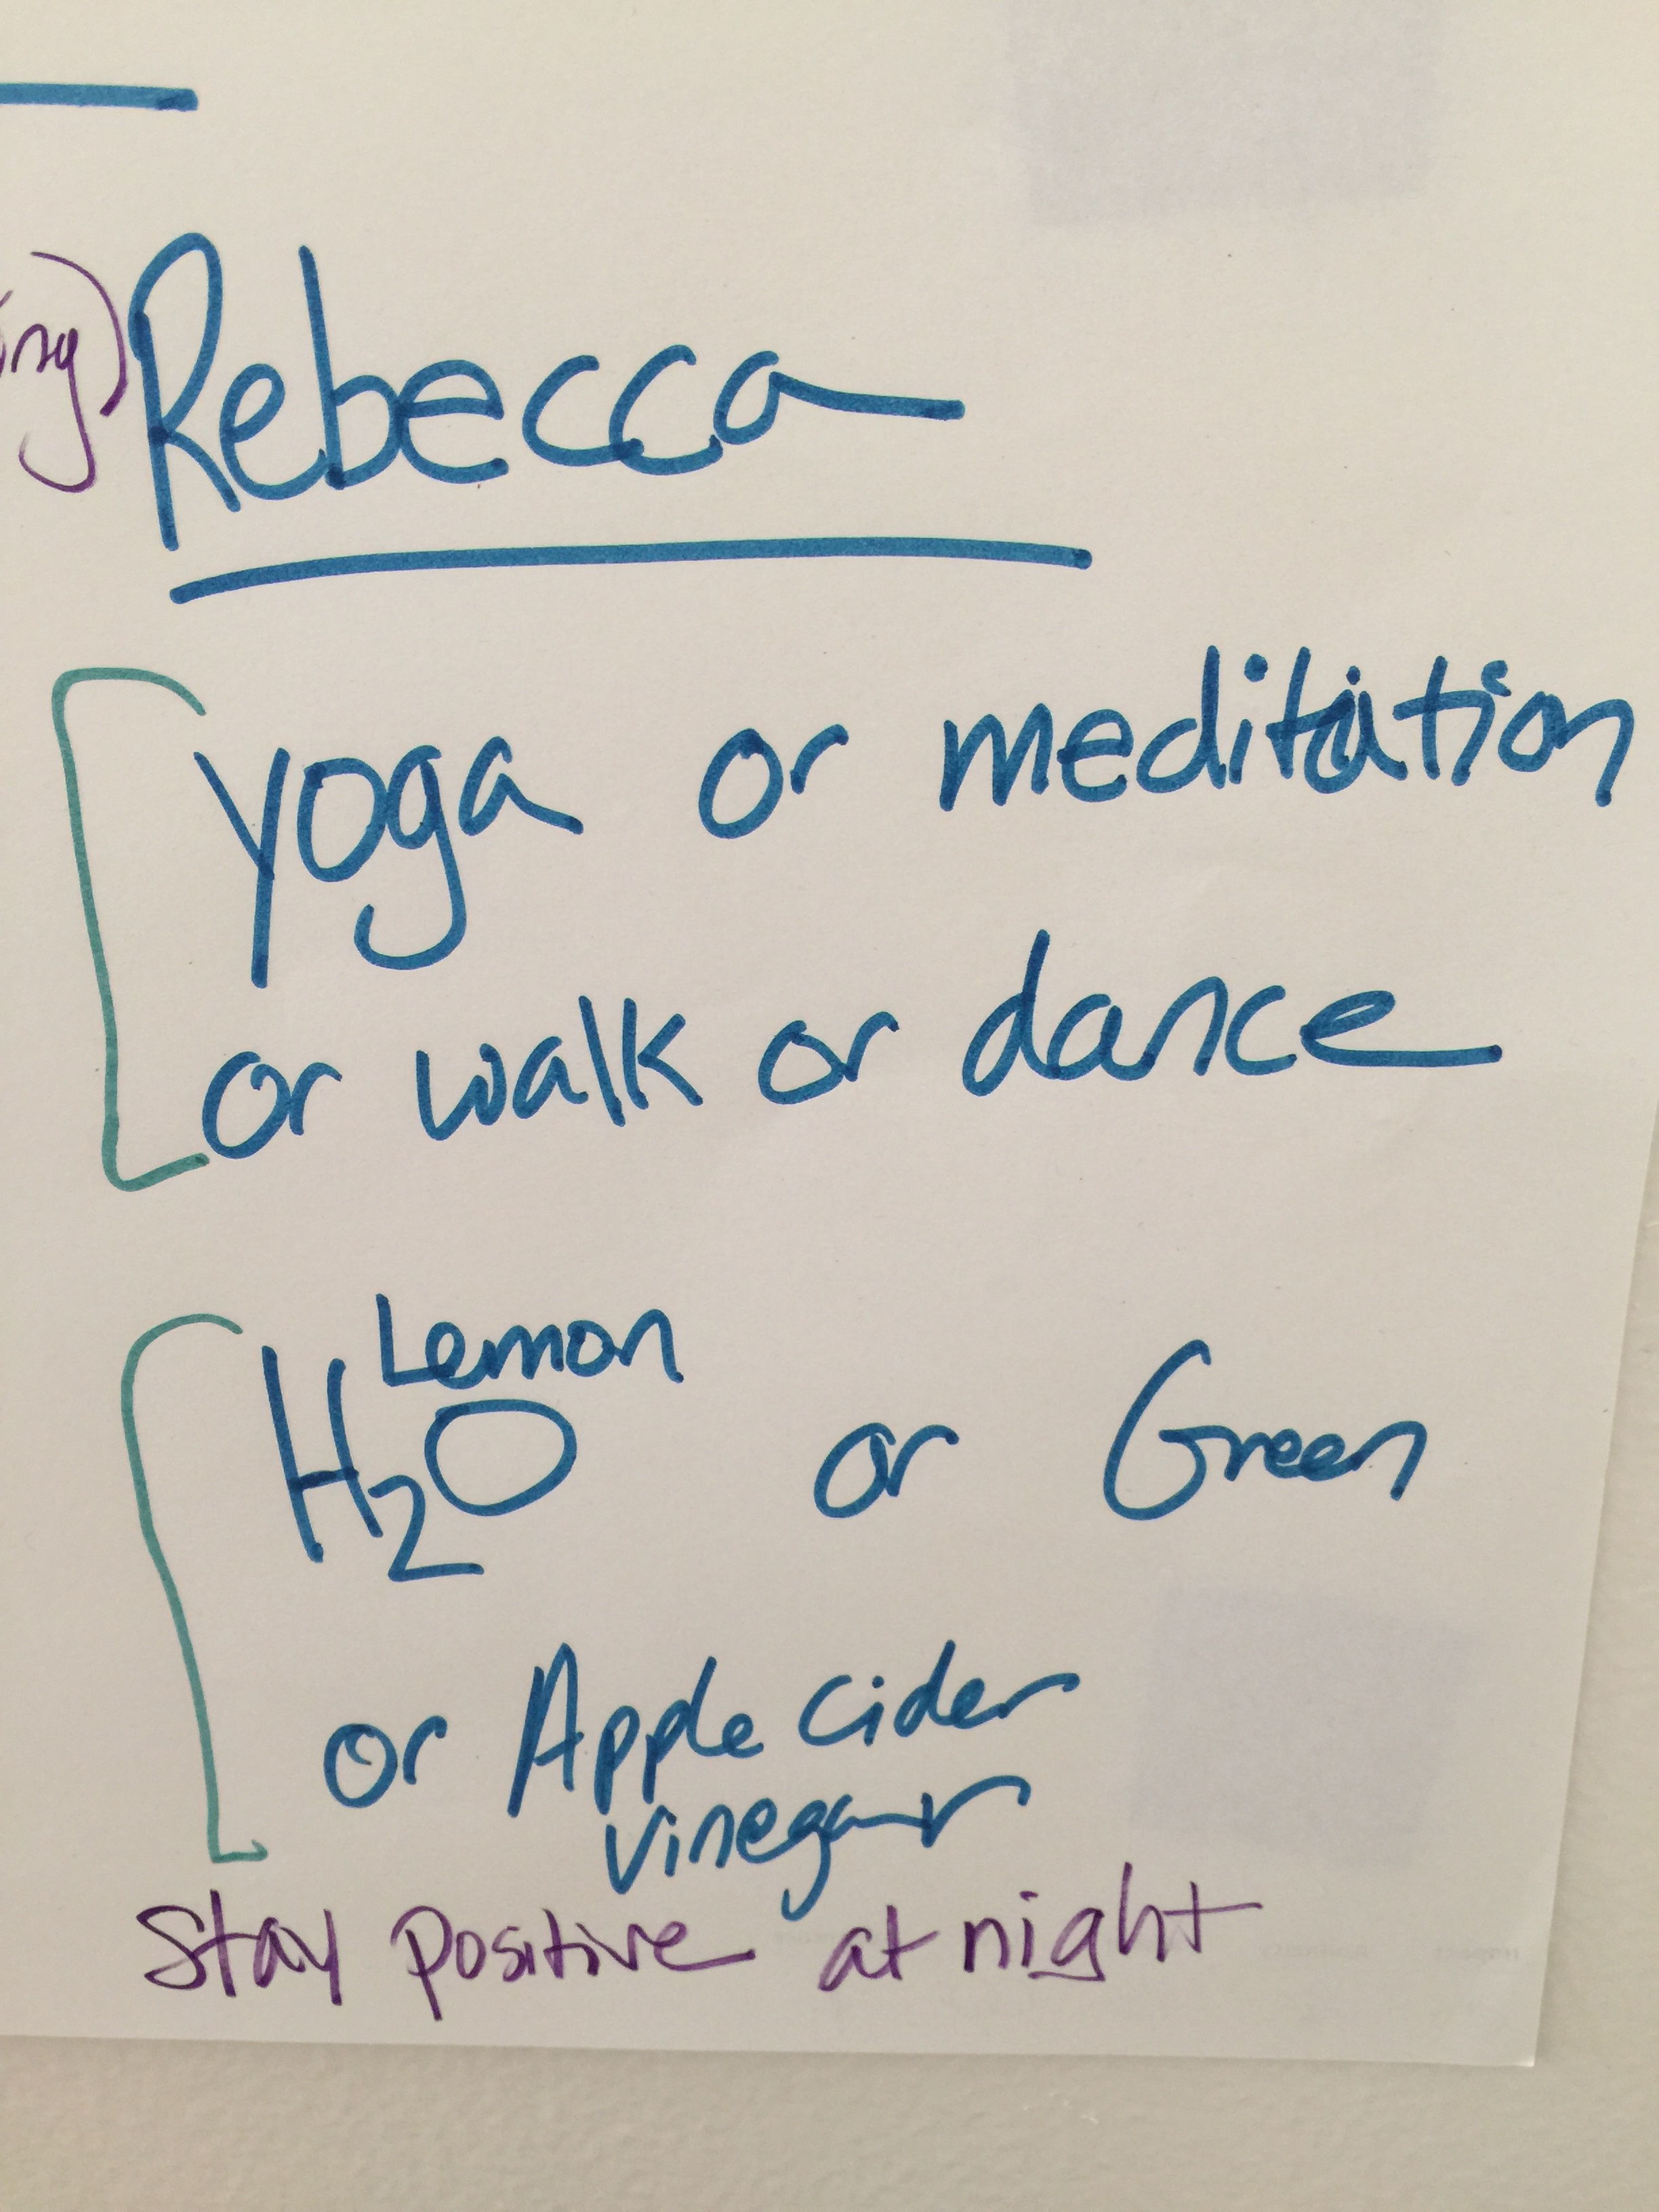 Rebecca
yoga or meditation
or walk or dance
Lemon
H₂O or Green
or Apple Cider
vinegar
Stay positive at night